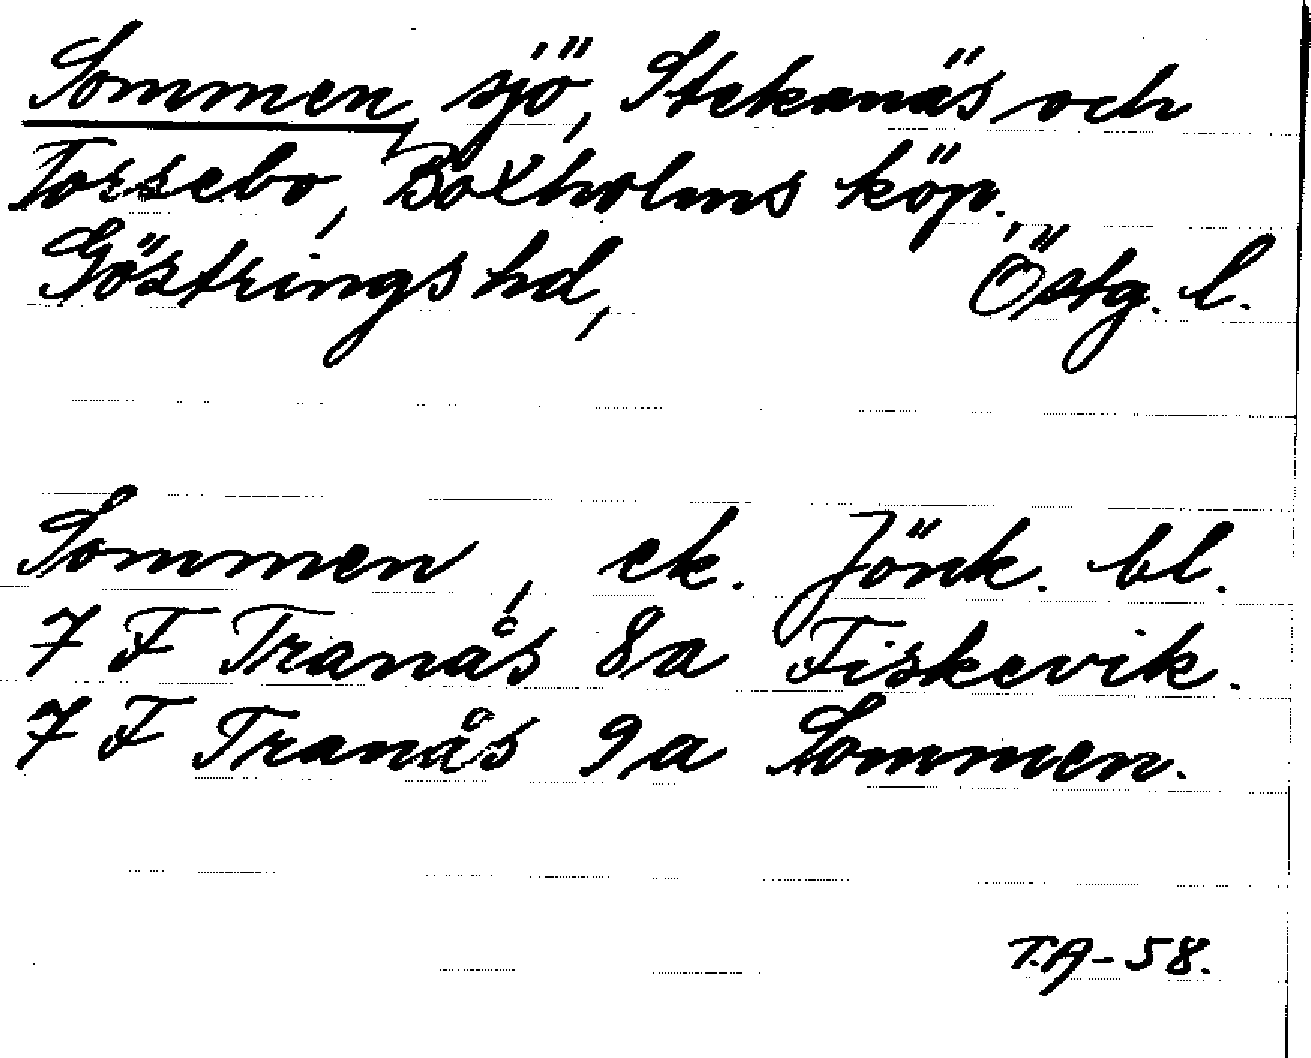 Sommen, sjö, Stekanäs och
Torsebo, Boxholms köp.,
Göstrings hd, Östg. l.
Sommen, ek. Jönk. bl.
7 F Tranås 8a Fiskevik.
7 F Tranås 9a Sommen.
T.A-58.